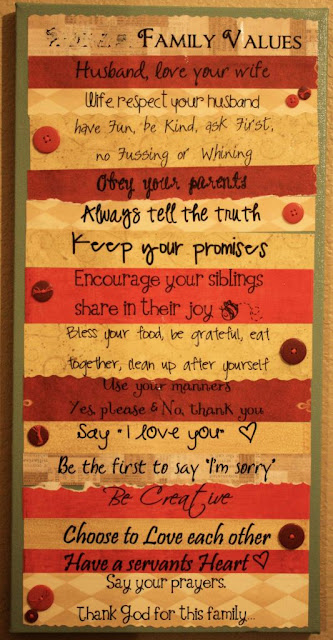 Family Values
Husband, love your wife
Wife, respect your husband
have Fun, be Kind, ask First,
no Fussing or Whining
Obey your parents
Always tell the truth
Keep your promises
Encourage your siblings
share in their joy
Bless your food, be grateful, eat
together, clean up after yourself
Use your manners
Yes, please & No, thank you
Say "I love you" ♡
Be the first to say "I'm sorry"
Be Creative
Choose to Love each other
Have a servants Heart ♡
Say your prayers.
Thank God for this family...